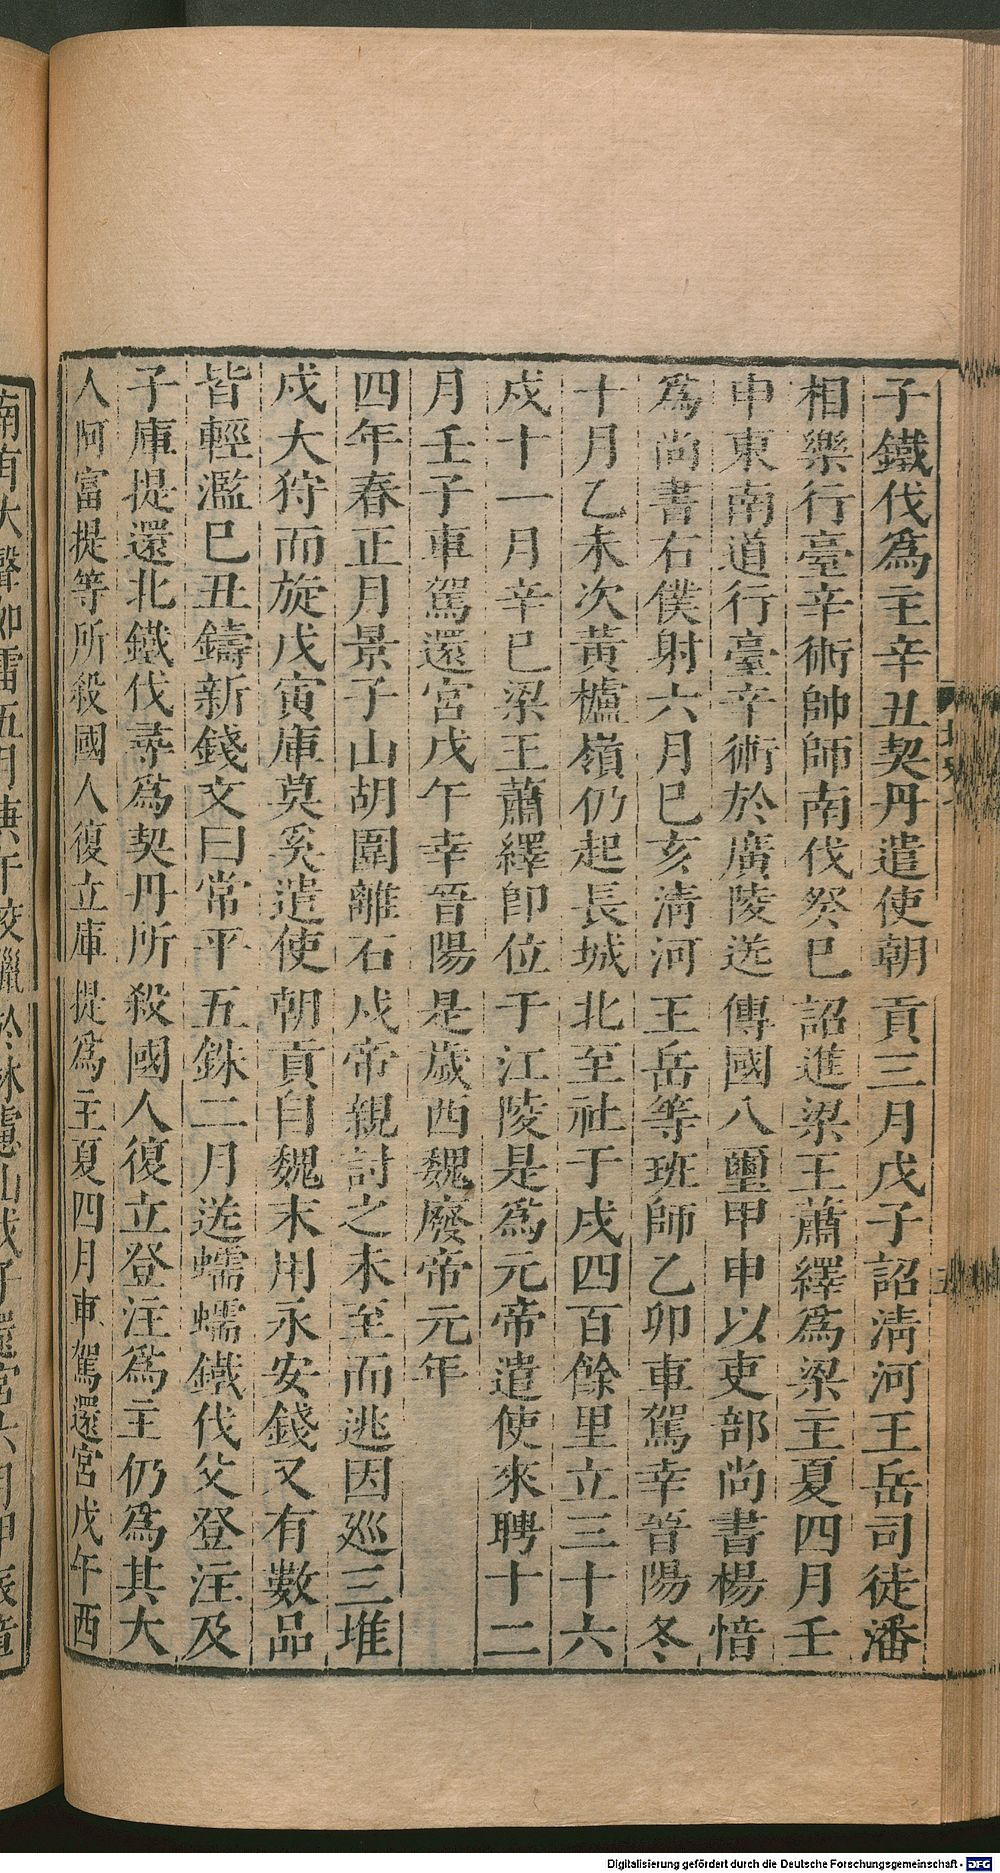 子鐵伐爲主辛丑契丹遣使朝貢三月戊子詔淸河王岳司徒潘
相樂行臺辛術帥師南伐癸巳詔進梁王蕭繹爲梁主夏四月壬
申東南道行臺辛術於廣陵送傳國八璽甲申以吏部尚書楊愔
爲尚書右僕射六月巳亥淸河王岳等班師乙卯車駕幸晉陽冬
十月乙未次黃櫨嶺仍起長城北至社于戌四百餘里立三十六
戍十一月辛巳梁王蕭繹卽位于江陵是爲元帝遣使來聘十二
月壬子車駕還宮戊午幸晉陽是歲西魏廢帝元年
四年春正月景子山胡圍離石戍帝親討之未至而逃因廵三堆
戍大狩而旋戊寅庫莫奚遣使朝貢自魏末用永安錢又有數品
皆輕濫巳丑鑄新錢文曰常平五銖二月送蠕蠕鐵伐父登注及
子庫提還北鐵伐尋爲契丹所殺國人復立登注爲主仍爲其大
人阿富提等所殺國人復立庫提爲主夏四月車駕還宮戊午西
南有大聲如雷五月庚午校獵於林慮山戊子還宮六月甲辰章
Digitalisierung gefördert durch die Deutsche Forschungsgemeinschaft - DFG